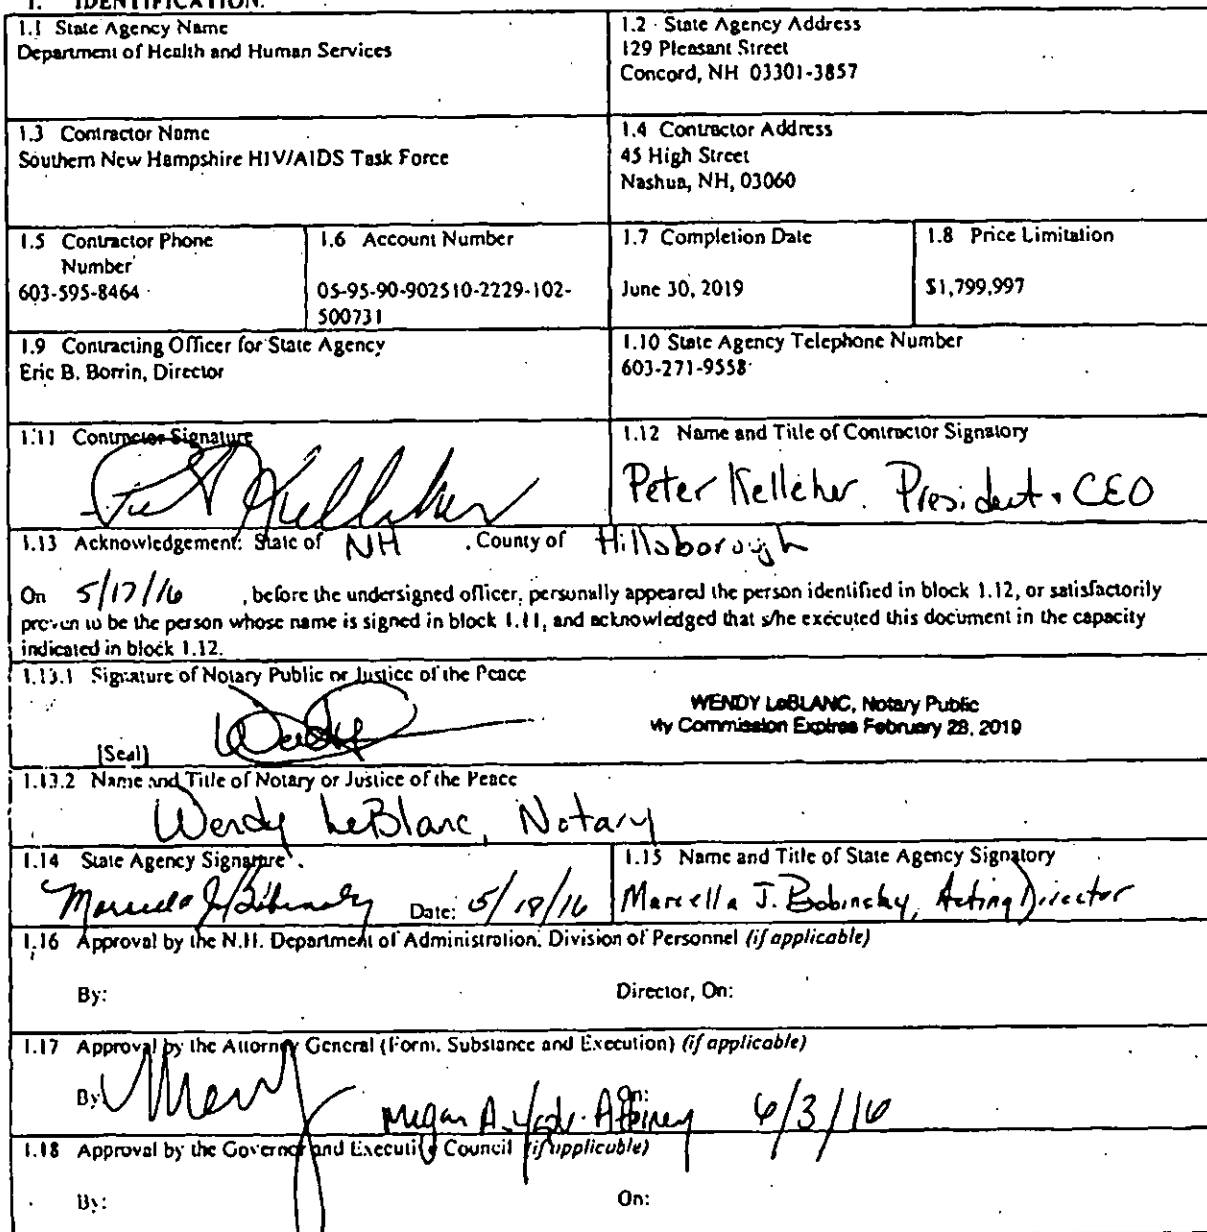 1. IDENTIFICATION.
1.1 State Agency Name
Department of Health and Human Services
1.2 State Agency Address
129 Pleasant Street
Concord, NH 03301-3857
1.3 Contractor Name
Southern New Hampshire HIV/AIDS Task Force
1.4 Contractor Address
45 High Street
Nashua, NH, 03060
1.5 Contractor Phone
Number
603-595-8464
1.6 Account Number
05-95-90-902510-2229-102-
500731
1.7 Completion Date
June 30, 2019
1.8 Price Limitation
$1,799,997
1.9 Contracting Officer for State Agency
Eric B. Borrin, Director
1.10 State Agency Telephone Number
603-271-9558
1.11 Contractor Signature
1.12 Name and Title of Contractor Signatory
Peter Kelleher. President & CEO
1.13 Acknowledgement: State of NH , County of Hillsborough
On 5/17/16 , before the undersigned officer, personally appeared the person identified in block 1.12, or satisfactorily
proven to be the person whose name is signed in block 1.11, and acknowledged that s/he executed this document in the capacity
indicated in block 1.12.
1.13.1 Signature of Notary Public or Justice of the Peace
WENDY LeBLANC, Notary Public
My Commission Expires February 28, 2019
[Seal]
1.13.2 Name and Title of Notary or Justice of the Peace
Wendy LeBlanc, Notary
1.14 State Agency Signature
Date: 5/18/16
1.15 Name and Title of State Agency Signatory
Marcella J. Bobinsky, Acting Director
1.16 Approval by the N.H. Department of Administration, Division of Personnel (if applicable)
By: Director, On:
1.17 Approval by the Attorney General (Form, Substance and Execution) (if applicable)
By: On:
Megan A. Attorney 6/3/16
1.18 Approval by the Governor and Executive Council (if applicable)
By: On: